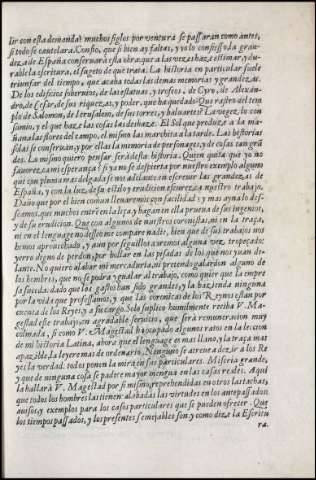 lir con esta demanda: muchos siglos por ventura se passaran como antes,
si todo se cautelara. Confio, que si bien ay faltas, y yo lo confiesso, la gran-
deza de España conseruarà esta obra: que a las vezes haze estimar, y du-
rable la escritura, el sugeto de que trata. La historia en particular suele
triunfar del tiempo, que acaba todas las demas memorias y grandezas.
De los edificios soberuios, de las estatuas, y trofeos, de Cyro, de Alexan-
dro, de Cesar, de sus riquezas, y poder, que ha quedado? Que rastro del tem-
plo de Salomon, de Ierusalem, de sus torres, y baluartes? La vejez lo con-
sumio, y el que haze las cosas las deshaze. El Sol que produze a la ma-
ñana las flores del campo, el mismo las marchita a la tarde. Las historias
solas se conseruan, y por ellas la memoria de personages, y de cosas tan grã
des. Lo mismo quiero pensar serà desta historia. Quien quita que yo no
fauorezca mi esperança? si ya no se despierta por nuestro exemplo alguno
que con pluma mas delgada se nos adelante en escreuir las grandezas de
España, y con la luz de su estilo y erudicion escurezca nuestro trabajo.
Daño que por el bien comun lleuaremos con facilidad: y mas ayna lo des-
seamos, que muchos entren en la liça, y hagan en ella prueua de sus ingenios,
y de su erudicion. Que con algunos de nuestros coronistas, ni en la traça,
ni en el lenguage no desseo me compare nadie, bien que de sus trabajos nos
hemos aprouechado, y aun por seguillos auremos alguna vez tropeçado:
yerro digno de perdon, por hollar en las pisadas de los que nos yuan de-
lante. No quiero alabar mi mercaduria, ni pretendo galardon alguno de
los hombres, que no se podra ygualar al trabajo, como quier que la empre
sa suceda: dado que los gastos han sido grandes, y la hazienda ninguna
por la vida que professamos, y que las coronicas de los Reynos estan por
cuenta de los Reyes, y a su cargo. Solo suplico humilmente reciba V. Ma-
gestad este trabajo en agradable seruicio, que serà remuneracion muy
colmada, si como V. Magestad ha ocupado algunos ratos en la leccion
de mi historia Latina, ahora que el lenguage es mas llano, y la traça mas
apazible, la leyere mas de ordinario. Ninguno se atreue a dezir a los Re
yes la verdad: todos ponen la mira en sus particulares. Miseria grande,
y que de ninguna cosa se padece mayor mengua en las casas reales. Aqui
la hallarà V. Magestad por si mismo, reprehendidas en otros las tachas,
que todos los hombres las tienen: alabadas las virtudes en los antepassados:
auisos, y exemplos para los casos particulares que se pueden ofrecer. Que
los tiempos passados, y los presentes semejables son, y como dize la Escritu
ra,